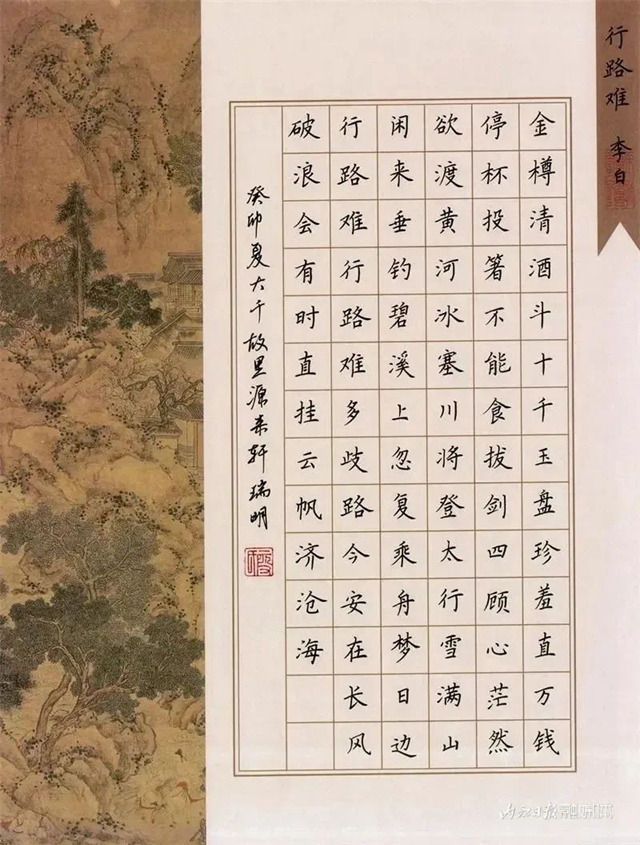 行路难 李白
金樽清酒斗十千玉盘珍羞直万钱
停杯投箸不能食拔剑四顾心茫然
欲渡黄河冰塞川将登太行雪满山
闲来垂钓碧溪上忽复乘舟梦日边
行路难行路难多歧路今安在长风
破浪会有时直挂云帆济沧海
癸卯夏大千故里源来轩瑞明
内江日报